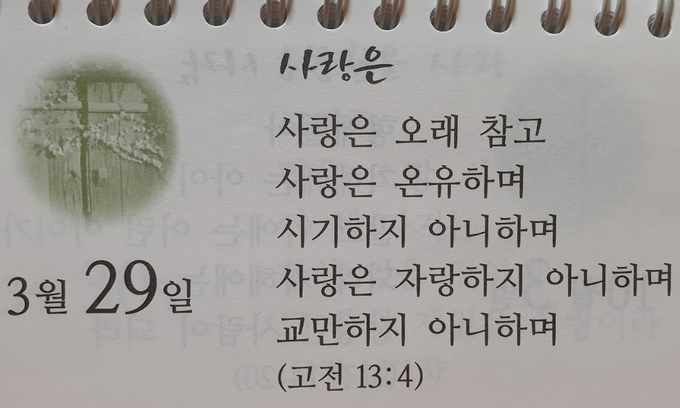 사랑은
사랑은 오래 참고
사랑은 온유하며
시기하지 아니하며
3월 29일
사랑은 자랑하지 아니하며
교만하지 아니하며
(고전 13:4)